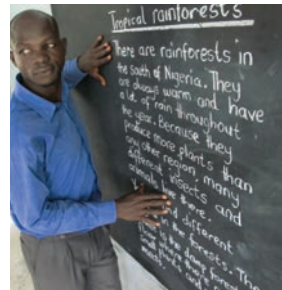 Tropical rainforests
There are rainforests in
the south of Nigeria. They
are always warm and have
a lot of rain throughout
the year. Because they
produce more plants than
any other region, many
different insects and
animals live there.
and different
in the forests. The
where the dense forest
small plants and